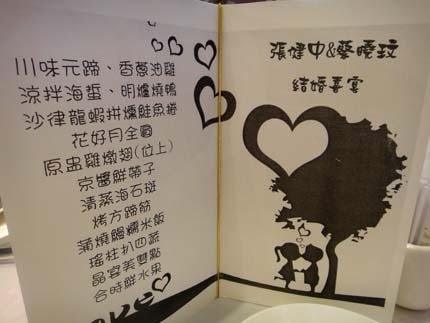 川味元蹄、香蔥油雞
涼拌海蜇、明爐燒鴨
沙律龍蝦拼燻鮭魚捲
花好月全圓
原盅雞燉翅(位上)
京醬鮮帶子
清蒸海石斑
烤方蹄筋
蒲燒鰻糯米飯
瑤柱扒四蔬
晶宴美雙點
合時鮮水果
張健中&蔡曉玟
結婚喜宴